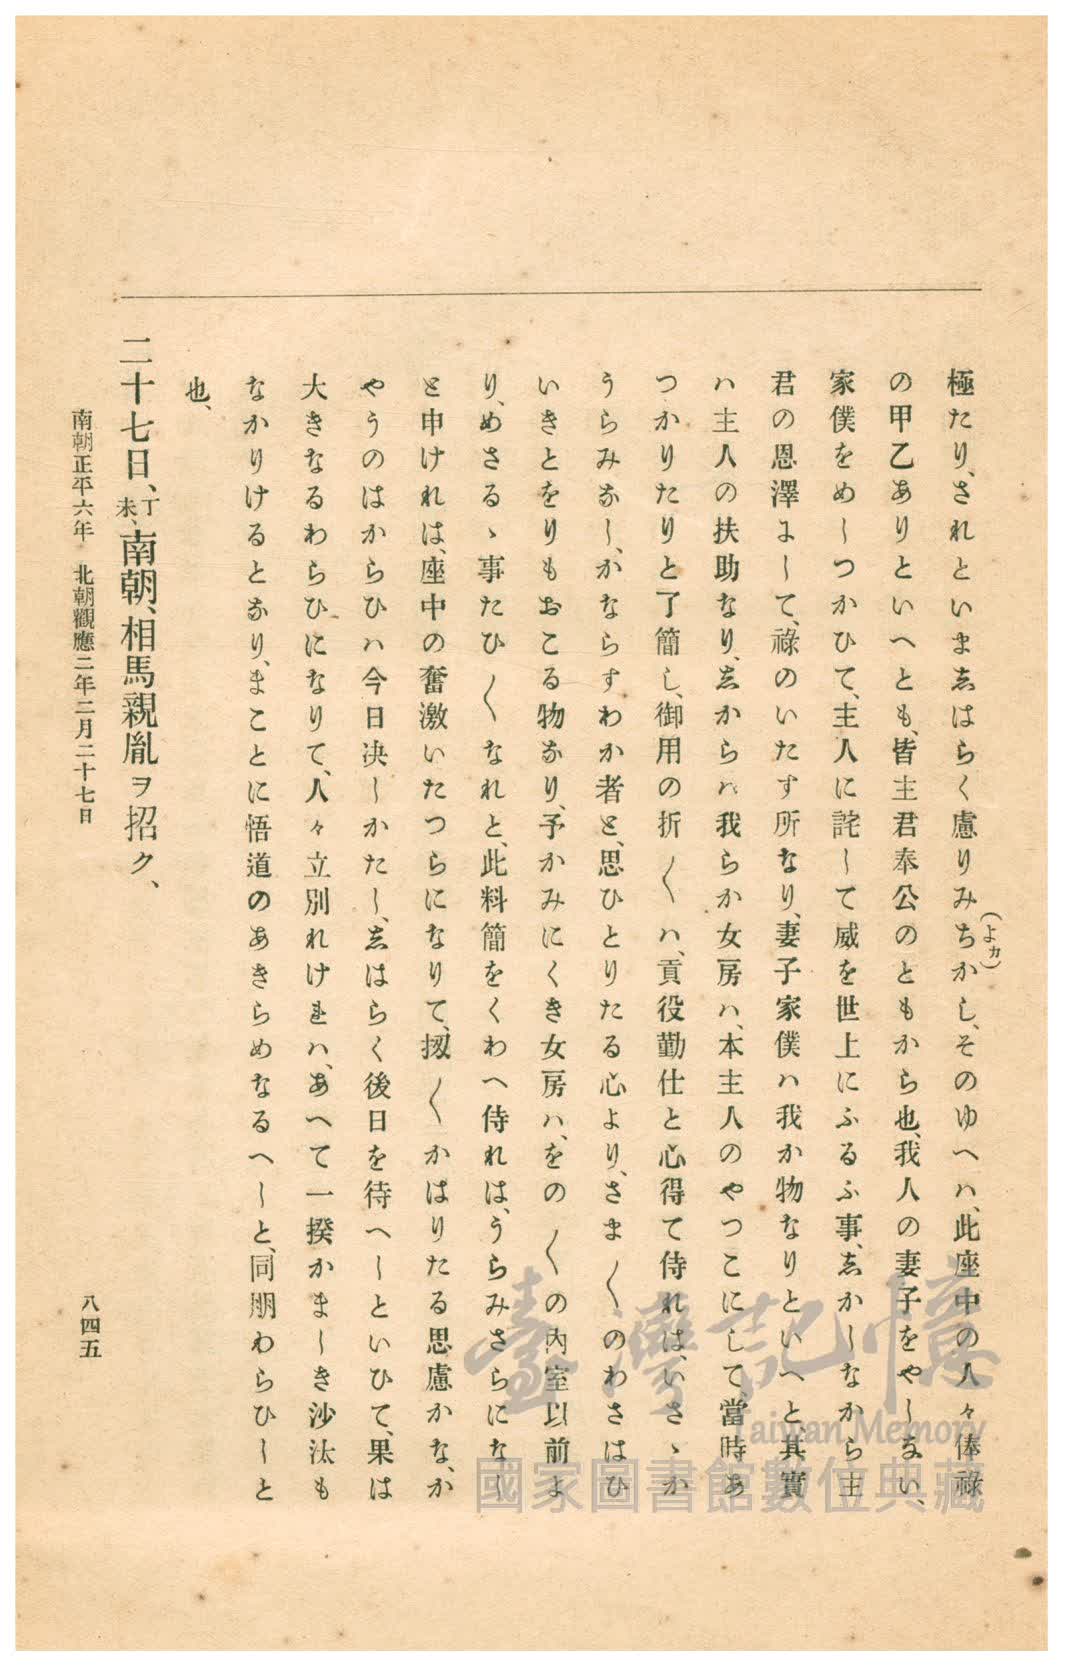 極たり、されといまゑはらく慮りみちかし、そのゆへハ、此座中の人々俸祿
(よカ)
の甲乙ありといへとも、皆主君奉公のともから也、我人の妻子をやしなひ、
家僕をめしつかひて、主人に詫して威を世上にふるふ事、ゑかしなから主
君の恩澤よして、祿のいたす所なり、妻子家僕ハ我か物なりといへと、其實
ハ主人の扶助なり、ゑからハ我らか女房ハ、本主人のやつこにして、當時あ
つかりたりと了簡し、御用の折〱ハ、貢役勤仕と心得て侍れは、いさゝか
うらみなし、かならすわか者と、思ひとりたる心より、さま〱のわさはひ
いきとをりもおこる物なり、予かみにくき女房ハ、をの〱の内室以前よ
り、めさるゝ事たひ〱なれと、此料簡をくわへ侍れは、うらみさらになし
と申けれは、座中の奮激いたつらになりて、扨〱かはりたる思慮かな、か
やうのはからひハ今日决しかたし、ゑはらく後日を待へしといひて、果は
大きなるわらひになりて、人々立別れけれハ、あへて一揆かましき沙汰も
なかりけるとなり、まことに悟道のあきらめなるへしと、同朋わらひしと
也、
二十七日、丁未、南朝、相馬親胤ヲ招ク、
南朝正平六年 北朝觀應二年二月二十七日
八四五
臺灣記憶
Taiwan Memory
國家圖書館數位典藏